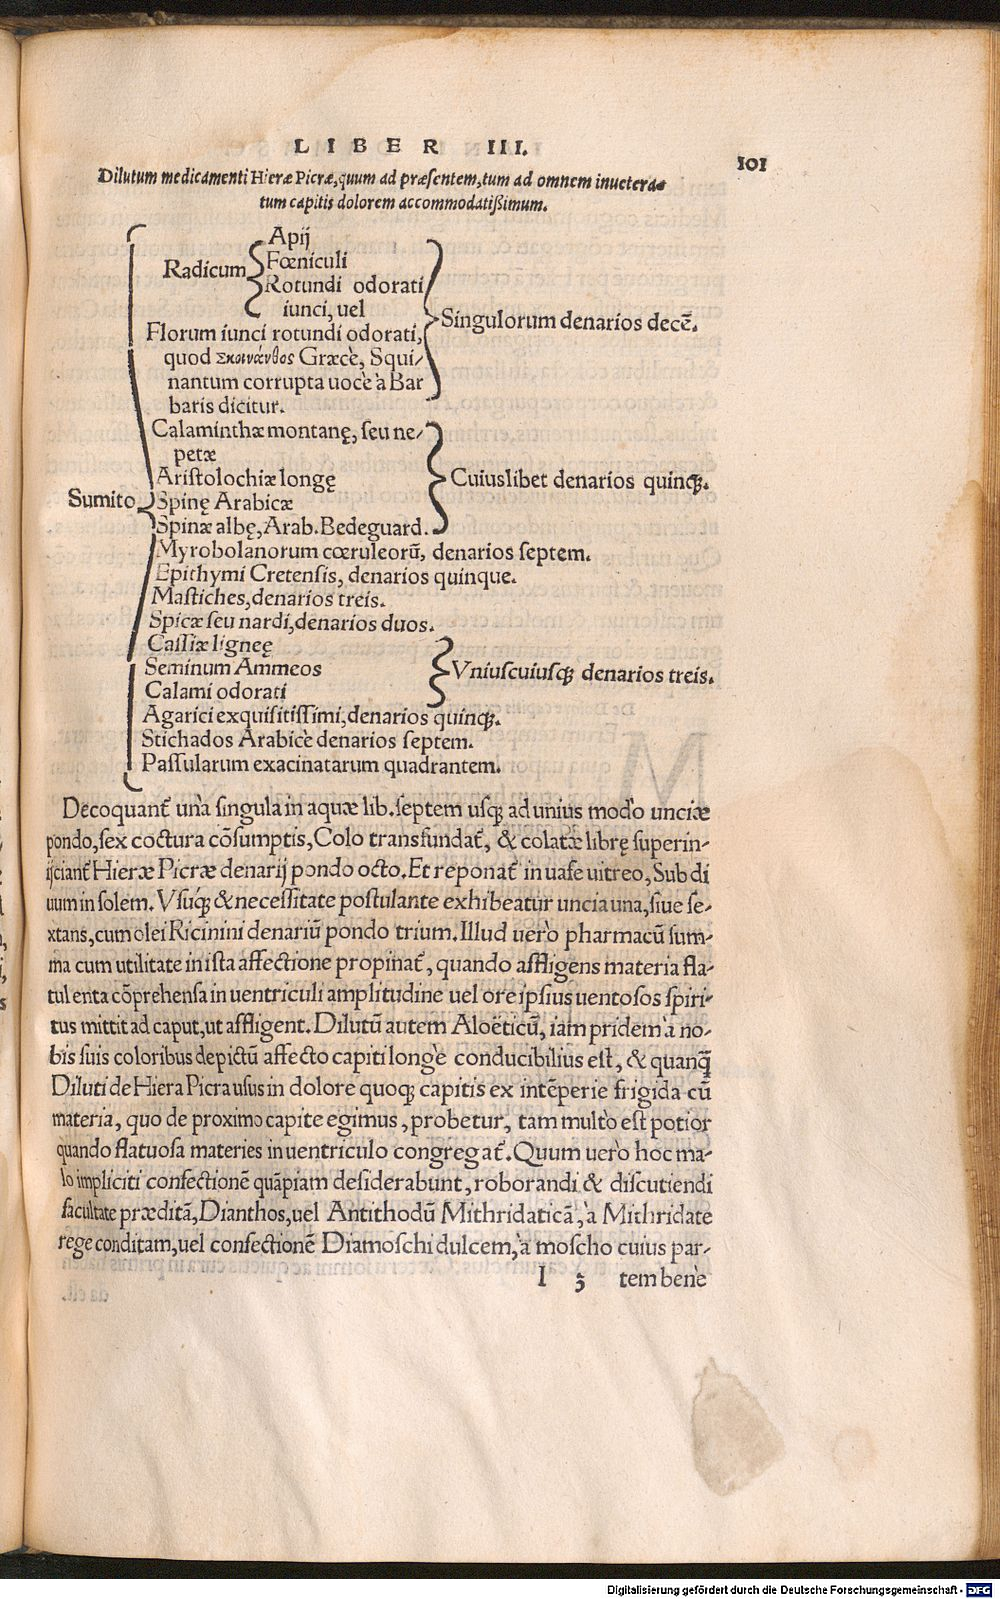 LIBER III.
101
Dilutum medicamenti Hieræ Picræ, quum ad præsentem, tum ad omnem invetera-
tum capitis dolorem accommodatißimum.
Apij
Radicum Fœniculi
Rotundi odorati
iunci, uel
Singulorum denarios decē.
Florum iunci rotundi odorati,
quod σκοινάνθος Græcè, Squi-
nantum corrupta uocè à Bar
baris dicitur.
Calaminthæ montanę, seu ne-
petæ
Aristolochiæ longę
Cuiuslibet denarios quinq̢.
Sumito Spinę Arabicæ
Spinæ albę, Arab. Bedeguard.
Myrobolanorum cœruleorũ, denarios septem.
Epithymi Cretensis, denarios quinque.
Mastiches, denarios treis.
Spicæ seu nardi, denarios duos.
Cassiæ ligneę
Seminum Ammeos
Vniuscuiusq̢ denarios treis.
Calami odorati
Agarici exquisitissimi, denarios quinq̢.
Stichados Arabicè denarios septem.
Passularum exacinatarum quadrantem.
Decoquant᷑ unà singula in aquæ lib. septem usq̢ ad unius modò unciæ
pondo, sex coctura cõsumptis, Colo transfundat᷑, & colatæ librę superin-
ijciant᷑ Hieræ Picræ denarij pondo octo. Et reponat᷑ in uase uitreo, Sub di
uum in solem. Vsuq̢́ & necessitate postulante exhibeatur uncia una, siue se-
xtans, cum olei Ricinini denariũ pondo trium. Illud uerò pharmacũ sum-
ma cum utilitate in ista affectione propinat᷑, quando affligens materia fla-
tulenta cõprehensa in uentriculi amplitudine uel ore ipsius uentosos spiri-
tus mittit ad caput, ut affligent. Dilutũ autem Aloëticũ, iam pridem à no-
bis suis coloribus depictũ affecto capiti longè conducibilius est, & quanq̃
Diluti de Hiera Picra usus in dolore quoq̢ capitis ex intẽperie frigida cũ
materia, quo de proximo capite egimus, probetur, tam multò est potior
quando flatuosa materies in uentriculo congregat᷑. Quum uerò hoc ma-
lo impliciti confectionẽ quãpiam desiderabunt, roborandi & discutiendi
facultate præditã, Dianthos, uel Antithodũ Mithridaticã, à Mithridate
rege conditam, uel confectionẽ Diamoschi dulcem, à moscho cuius par-
I 3 tem benè
Digitalisierung gefördert durch die Deutsche Forschungsgemeinschaft - DFG